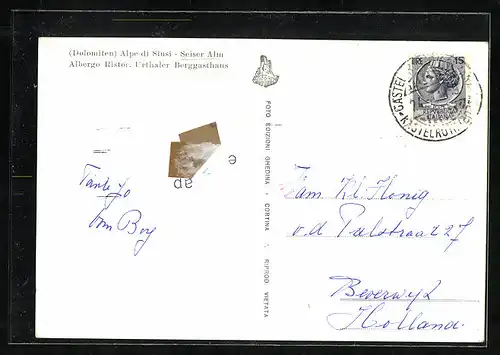 (Dolomiten) Alpe di Siusi - Seiser Alm
Albergo Ristor. Urthaler Berggasthaus
LIRE 15
CASTEL
KASTELRUTH
FOTO EDIZIONI GHEDINA - CORTINA - RIPROD. VIETATA
e
ap
Tante Jo
Oom Boy
Fam. Kl. Honig
v.d Palstraat 27
Beverwijk
Holland.